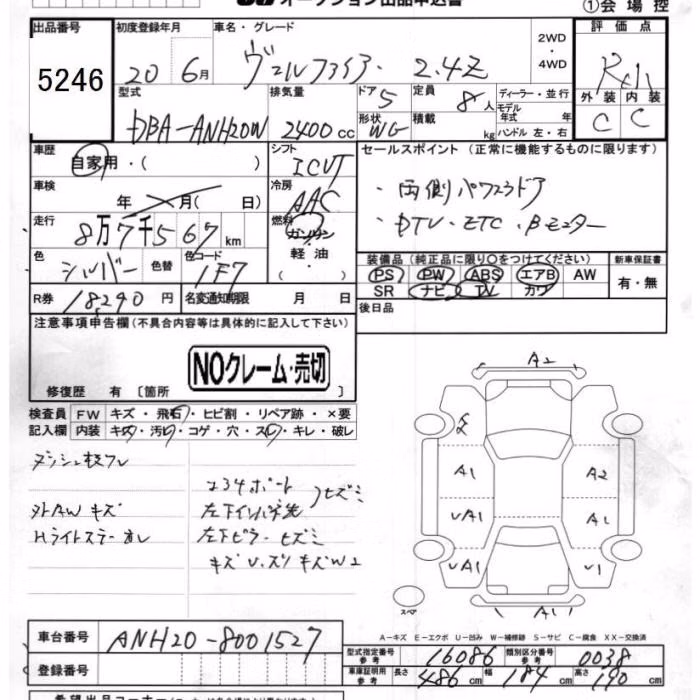 オークション出品申込書
①会場控
出品番号
5246
初度登録年月
20 6月
車名・グレード
ヴェルファイア 2.4Z
2WD・4WD
評価点
外装 内装
C C
型式
DBA-ANH20W
排気量
2400cc
ドア 5
形状 WG
定員 8人
積載 kg
ディーラー・並行
モデル年式 年
ハンドル 左・右
車歴
自家用・( )
シフト
ICVT
車検
年 月( 日)
冷房
AAC
走行
8万7千567km
燃料
ガソリン・軽油・( )
色
シルバー
色替
色コード
1F7
R券 18290円
名変通知期限 月 日
セールスポイント(正常に機能するものに限ります)
・両側パワースライドドア
・DTV・ETC・Bモニター
装備品(純正品に限り○をつけてください)
PS PW ABS エアB AW
SR ナビ TV カワ
新車保証書
有・無
後日品
注意事項申告欄(不具合内容等は具体的に記入して下さい)
NOクレーム・売切
修復歴 有 〔箇所 〕
検査員 FW キズ・飛石・ヒビ割・リペア跡・×要
記入欄 内装 キズ・汚レ・コゲ・穴・スレ・キレ・破レ
外AWキズ
左下ピラーヒズミ
A2
A1 A2
UA1 A1
UA1 U1
A1
スペア
A-キズ E-エクボ U-凹み W-補修跡 S-サビ C-腐食 XX-交換済
車台番号
ANH20-8001527
登録番号
型式指定番号 参考 16086
類別区分番号 参考 0038
車庫証明用 参考 長さ 486cm 幅 184cm 高さ 190cm